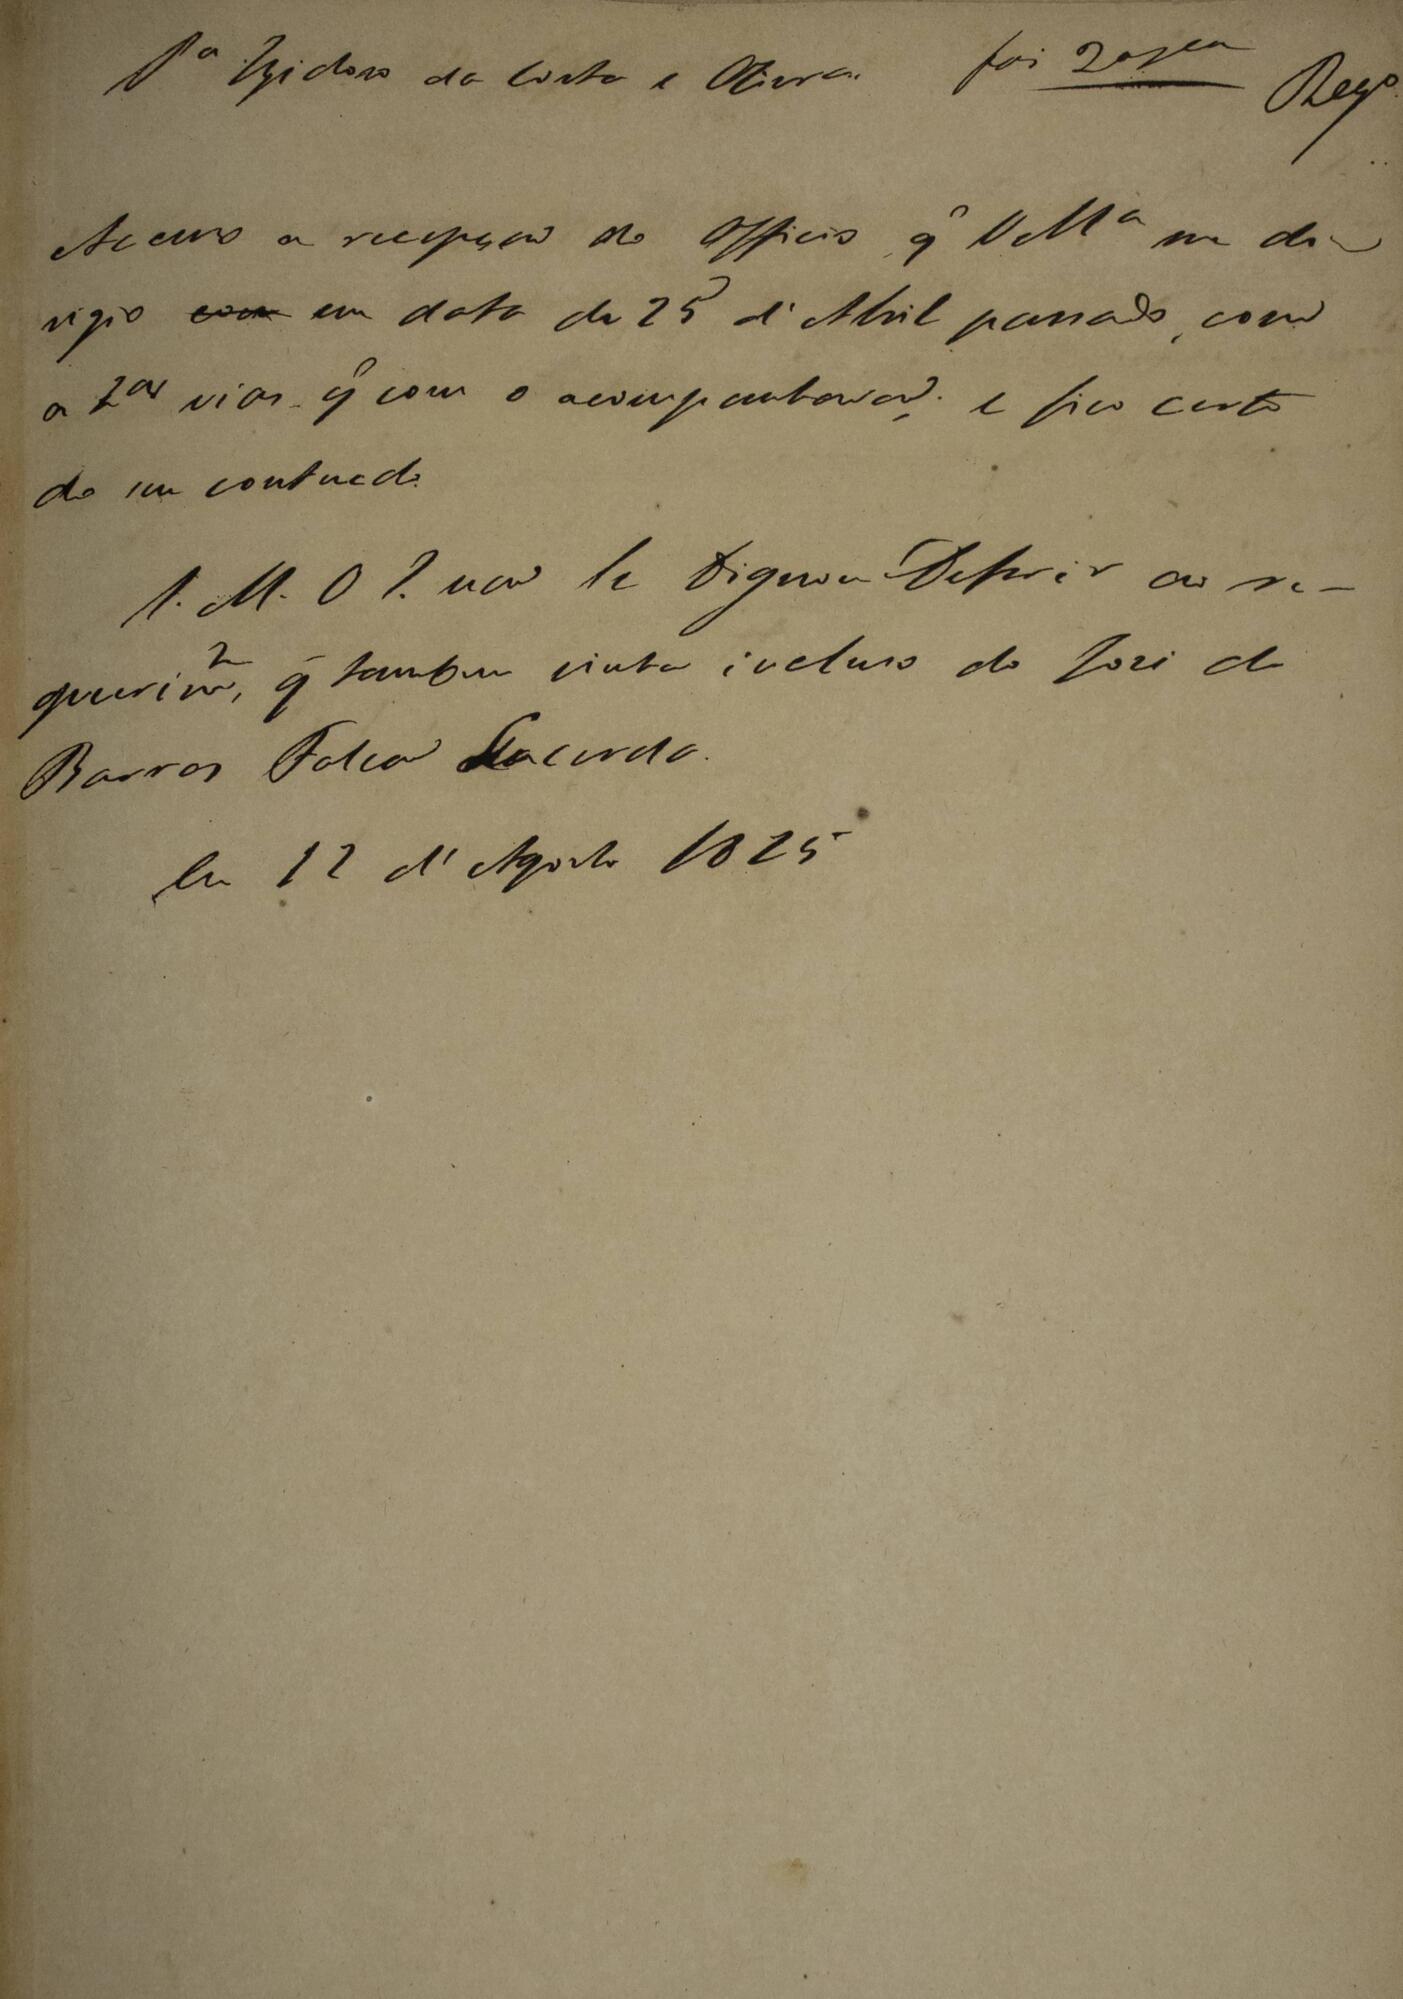 Pª Izidoro da Costa e Olivra. foi 2ª via Rego
Accuso a recepçaõ do Officio q̃ VMª me di-
rigio com em data de 25 d'Abril passado, com
a 2as vias q̃ com o acompanhavaõ, e fico certo
do seu contuedo.
S. M. O I. naõ se Dignou Deferir ao re-
querimto, q̃ tambem vinha incluso do José de
Barros Falcaõ Lacerda.
Em 12 d'Agosto 1825